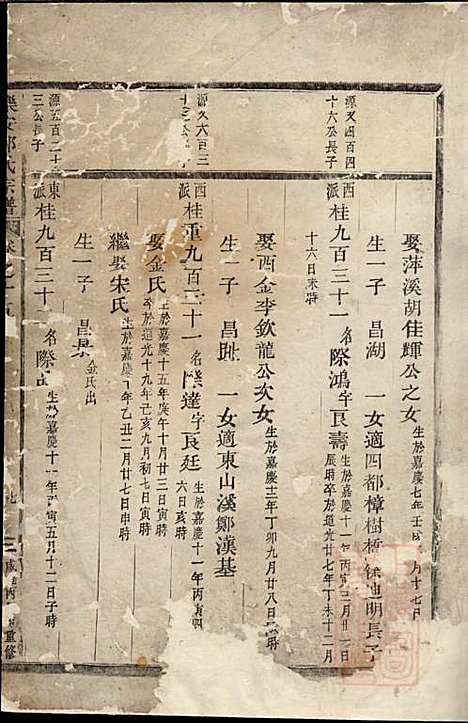 娶萍溪胡佳輝公之女 生於嘉慶七年壬 月十七
生一子 昌湖 一女適四都樟樹橋徐迪明長子
源又四百四十六公長子
西派 桂九百三十一 名際鴻 字良壽 生於嘉慶十一年丙寅 二月 一日辰時 卒於道光廿七年丁未十二月
十六日未時
娶西金李欽龍公次女 生於嘉慶十二年丁卯九月廿八日 時
生一子 昌 一女適東山溪鄭漢基
源又六百三十 公長子
西派 桂重九百三十一 名 達 字良廷 生於嘉慶十一年丙寅 六日亥時
娶金氏 生於嘉慶十五年庚午十月廿三日寅時 卒於道光十九年己亥九月初七日寅時
繼娶宋氏 生於嘉慶 年乙丑二月廿七日申時
生一子 昌 金氏出
源五百二十三公長子
東派 桂九百三十一 名際 生於嘉慶十一年丙寅五月十二日子時
氏宗譜 卷之十五
咸 丙 重修